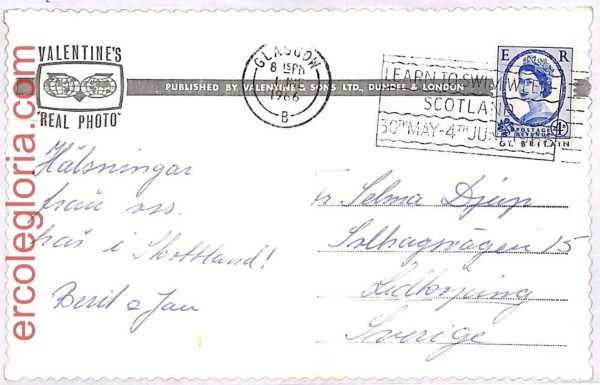 VALENTINE'S
"REAL PHOTO"
PUBLISHED BY VALENTINE & SONS LTD., DUNDEE & LONDON
GLASGOW
8 15PM
1 JUN
1966
B
LEARN TO SWIM WEEK
SCOTLAND
30TH MAY-4TH JUNE
E R
POSTAGE REVENUE
4D
GT. BRITAIN
Hälsningar
från oss
här i Skottland!
Berit o Jan
Fr. Selma Djup
Solhagsvägen 15
Lidköping
Sverige
ercolegloria.com